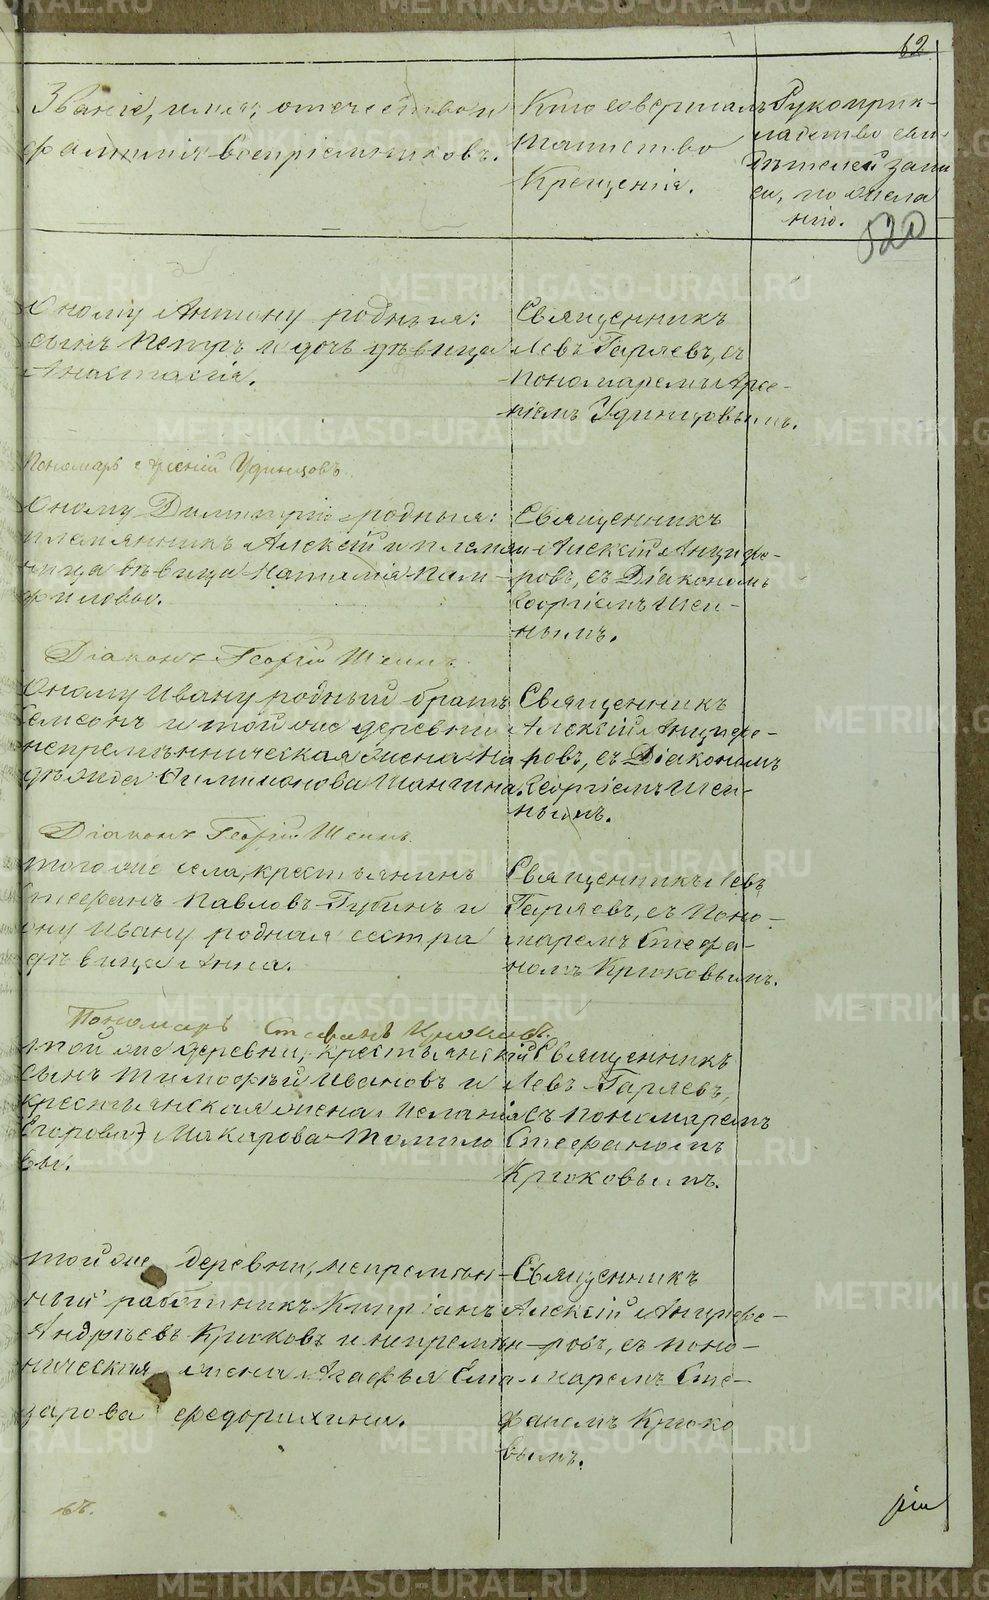 62
Званіе, имя, отечество и
фамилія воспріемниковъ.
Кто совершалъ
таинство
Крещенія.
Рукоприк-
ладство сви-
дѣтелей запи
си, по жела
нію.
520
Оному Антону родныя:
сынъ Петръ и дочь дѣвица
Анастасія.
Священникъ
Левъ Гаряевъ, съ
пономаремъ Арсе-
ніемъ Удинцовымъ.
Пономарь Арсеній Удинцовъ
Оному Димитрію родныя:
племянникъ Алексій и племян
ница дѣвица Наталія Пам-
филовы.
Священникъ
Алексій Анциѳе-
ровъ, съ Діакономъ
Георгіемъ Шеи-
нымъ.
Діаконъ Георгій Шеинъ
Оному Ивану родный братъ
Семеонъ и той же деревни
непремѣнническая жена На
дежда Филимонова Шангина.
Священникъ
Алексій Анциѳе-
ровъ, съ Діакономъ
Георгіемъ Шеи-
нымъ.
Діаконъ Георгій Шеинъ
того же села, крестьянинъ
Стефанъ Павловъ Губинъ и
ону Ивану родная сестра
дѣвица Анна.
Священникъ Левъ
Гаряевъ, съ Поно-
маремъ Стефа-
номъ Крюковымъ.
Пономарь Стефанъ Крюковъ.
той же деревни, крестьянскій
сынъ Тимофей Ивановъ и
крестьянская жена Меланія
Егорова Макарова Томило
вы.
Священникъ
Левъ Гаряевъ,
съ пономаремъ
Стефаномъ
Крюковымъ.
той же деревни, непремѣн-
ный работникъ Кипріанъ
Андреевъ Крюковъ и непремѣн-
ническая жена Агафья Ела-
зарова Федорихина.
Священникъ
Алексій Анциѳе-
ровъ, съ поно-
маремъ Сте-
фаномъ Крюко
вымъ.